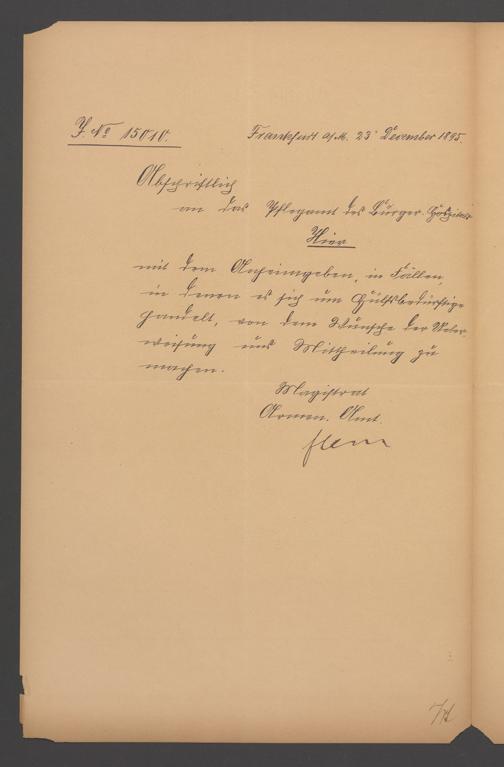 J. No 15010. Frankfurt a/M. 23 December 1895.
Abschriftlich
an das Pflegamt des Bürger-Hospitals
Hier
mit dem Anheimgeben, in Fällen,
in denen es sich um Hülfsbedürftige
handelt, von dem Wunsche der Ueber-
weisung uns Mittheilung zu
machen.
Magistrat
Armen-Amt.